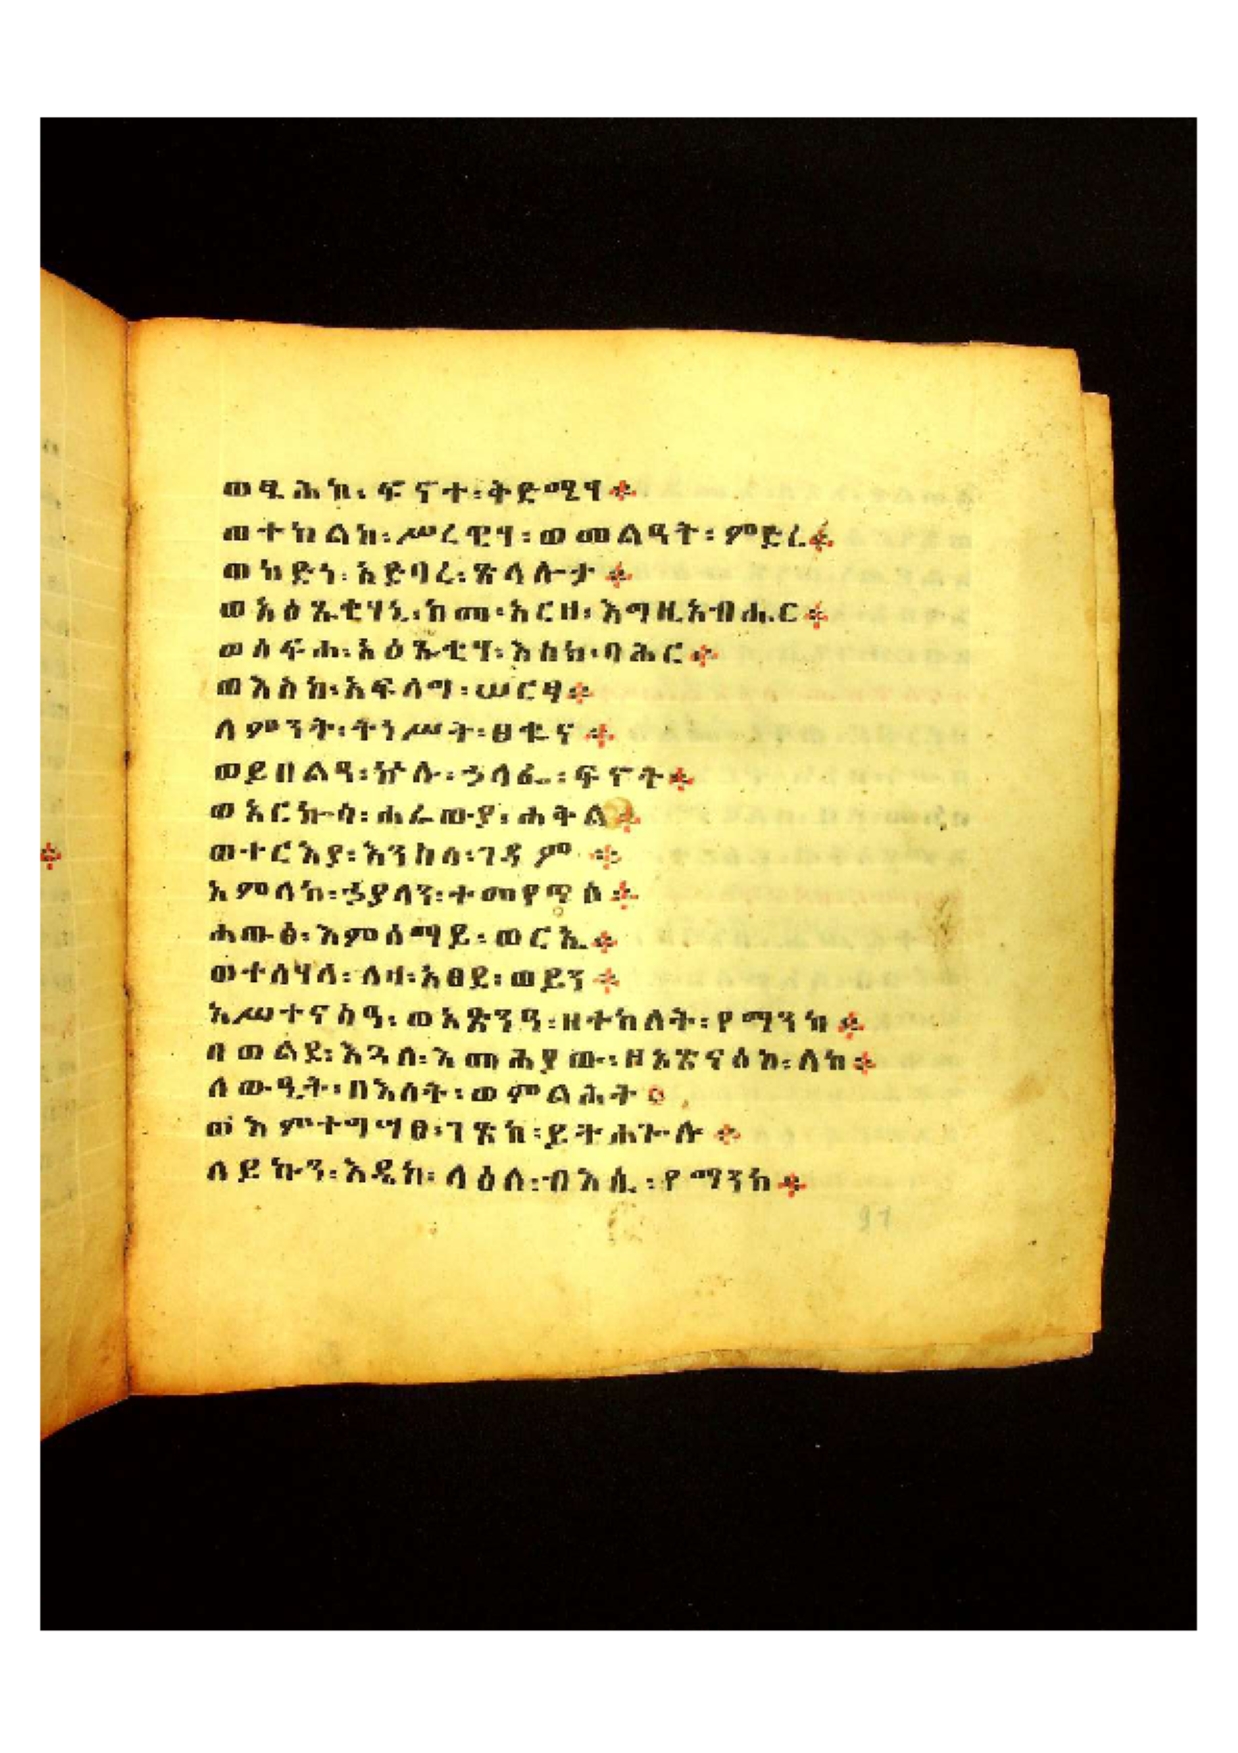 ወጼሕከ፡ ፍኖተ፡ ቅድሜሃ።
ወተከልከ፡ ሥረዊሃ፡ ወመልዓት፡ ምድረ።
ወከድነ፡ አድባረ፡ ጽላሎታ።
ወአዕጹቂሃኒ፡ ከመ፡ አርዘ፡ እግዚአብሔር።
ወሰፍሐ፡ አዕጹቂሃ፡ እስከ፡ ባሕር።
ወእስከ፡ አፍላግ፡ ሠርፃ።
ለምንት፡ ትነሥት፡ ፀቁና።
ወይበልዓ፡ ኵሉ፡ ኃላፌ፡ ፍኖት።
ወአርኩሳ፡ ሐራውያ፡ ሐቅል።
ወተርእያ፡ እንከሰ፡ ገዳም።
አምላከ፡ ኃያላን፡ ተመየጥሰ።
ሐውፅ፡ እምሰማይ፡ ወርኢ።
ወተሰሃላ፡ ለዛ፡ አፀደ፡ ወይን።
አሥተናስዓ፡ ወአጽንዓ፡ ዘተከለት፡ የማንከ።
በወልደ፡ እጓለ፡ እመሕያው፡ ዘአጽናዕከ፡ ለከ።
ለውዒት፡ በእሳት፡ ወምልሕት።
ወእምተግሣፀ፡ ገጽከ፡ ይትሐጐሉ።
ለይኩን፡ እዴከ፡ ላዕለ፡ ብእሲ፡ የማንከ።
91